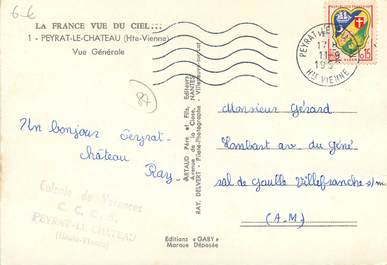 LA FRANCE VUE DU CIEL...
1 - PEYRAT-LE-CHATEAU (Hte-Vienne)
Vue Générale
87
Un bonjour Peyrat-
château
Ray.
Colonie de Vacances
PEYRAT-LE CHATEAU
(Haute-Vienne)
ARTAUD Père et Fils, Éditeurs
Avenue de la Close, NANTES
RAY. DELVERT - Pilote-Photographe - Villeneuve-sur-Lot
Editions «GABY»
Marque Déposée
PEYRAT
17
11-8
HTE VIENNE
0,15
Monsieur Gérard
Lambart av. du géné
ral de gaulle Villefranche s/m
(A-M)